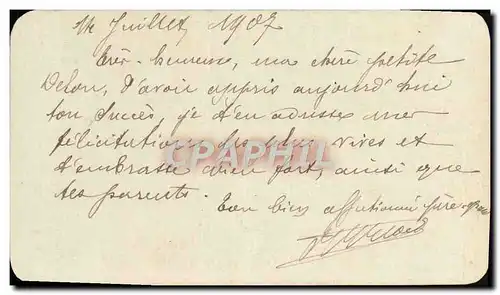 14 Juillet 1907
Très heureuse, ma chère petite
d'avoir appris aujourd'hui
ton succès, je t'en adresse mes
félicitations les plus vives et
t'embrasse bien fort, ainsi que
tes parents.
Ton bien affectionné
CPAPHIL